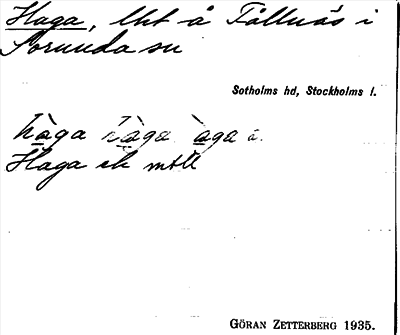 Haga, lht å Tållnäs i
Sorunda sn
Sotholms hd, Stockholms l.
hàga hàga àga å.
Haga ek mtll
GÖRAN ZETTERBERG 1935.